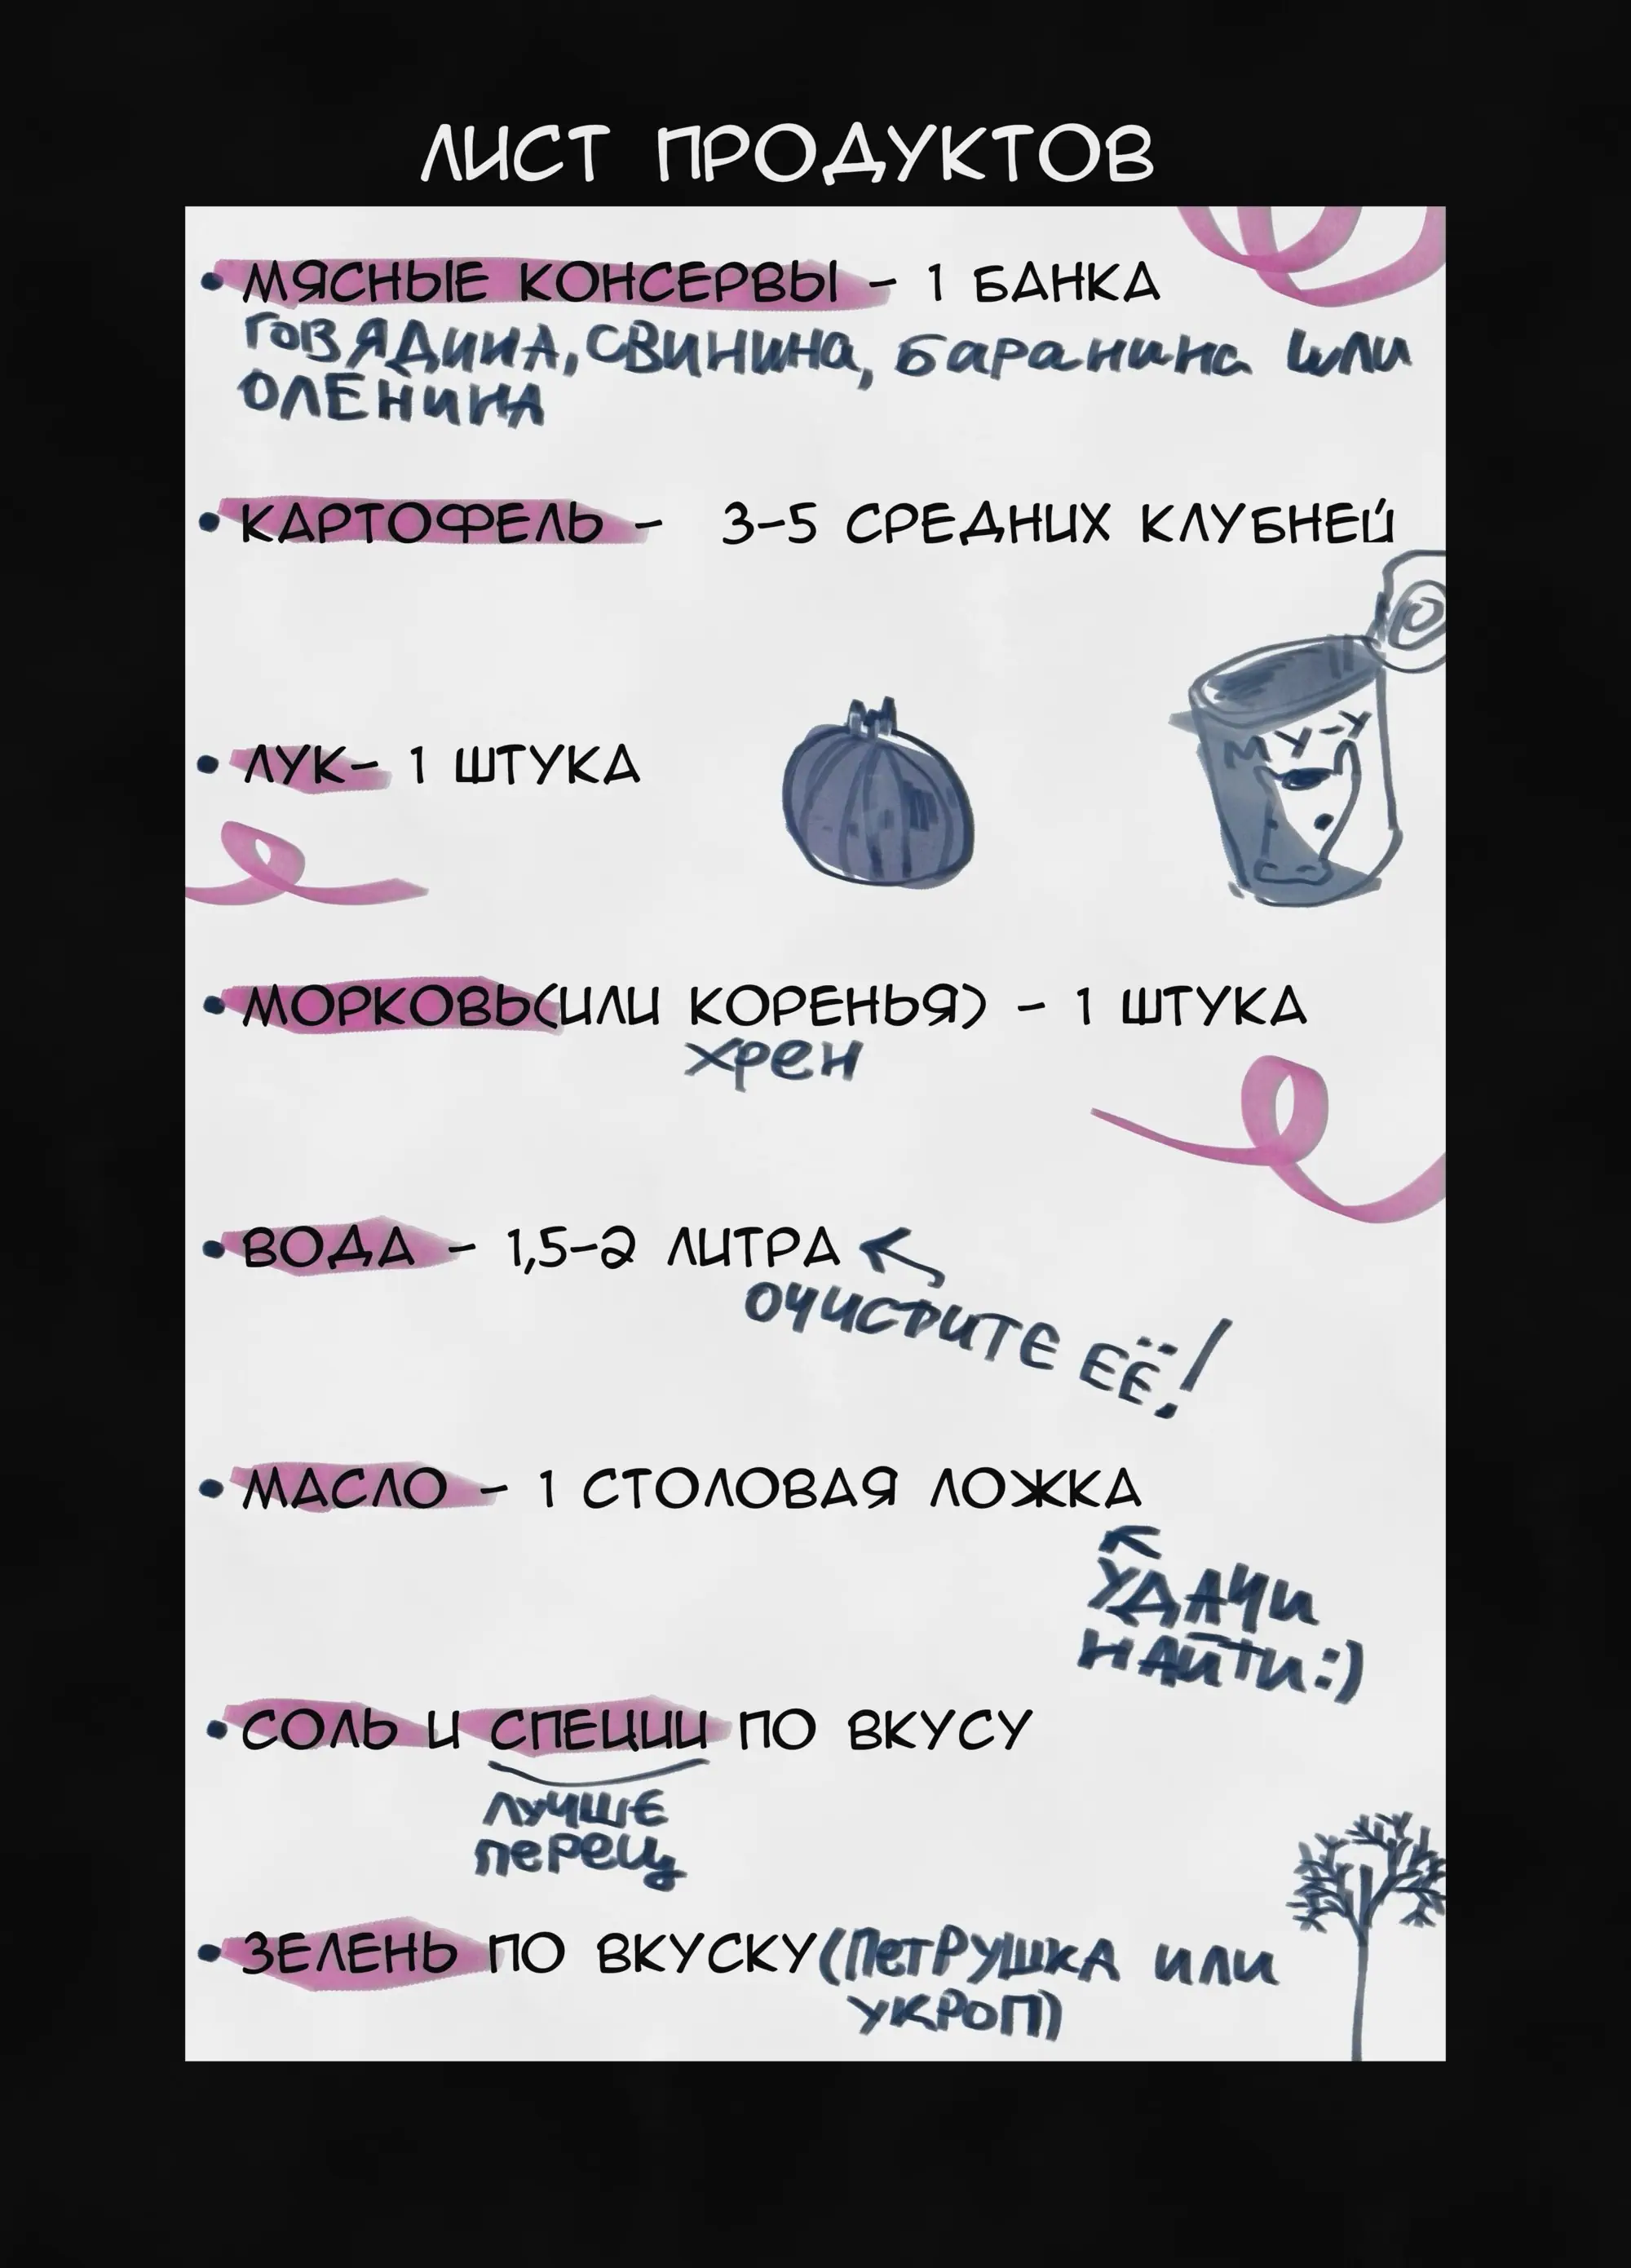 ЛИСТ ПРОДУКТОВ
• МЯСНЫЕ КОНСЕРВЫ - 1 БАНКА
ГОВЯДИНА, СВИНИНА, баранина или
ОЛЕНИНА
• КАРТОФЕЛЬ - 3-5 СРЕДНИХ КЛУБНЕЙ
МУ-У
• ЛУК- 1 ШТУКА
• МОРКОВЬ(ИЛИ КОРЕНЬЯ) - 1 ШТУКА
хрен
• ВОДА - 1,5-2 ЛИТРА
ОЧИСТИТЕ ЕЁ!
• МАСЛО - 1 СТОЛОВАЯ ЛОЖКА
УДАЧИ
НАЙТИ:)
• СОЛЬ И СПЕЦИИ ПО ВКУСУ
ЛУЧШЕ
перец
• ЗЕЛЕНЬ ПО ВКУСКУ(ПЕТРУШКА ИЛИ
УКРОП)